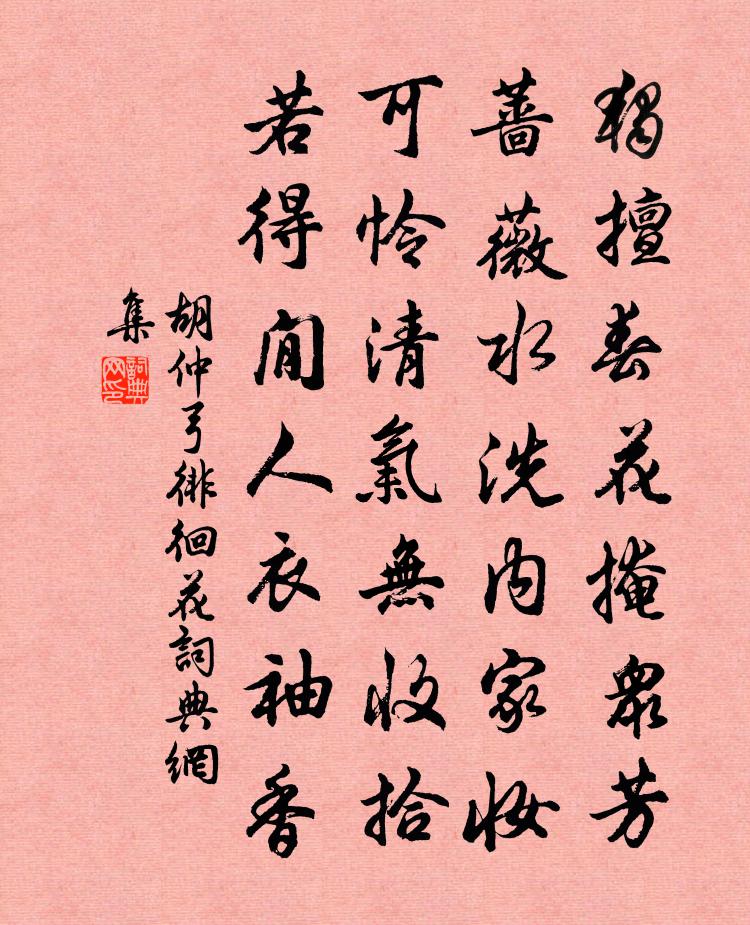 獨擅春花掩衆芳
薔薇水洗内家妝
可怜清氣無收拾
若得閒人衣袖香
胡仲弓徘徊花詞典網
集
詞典
网印